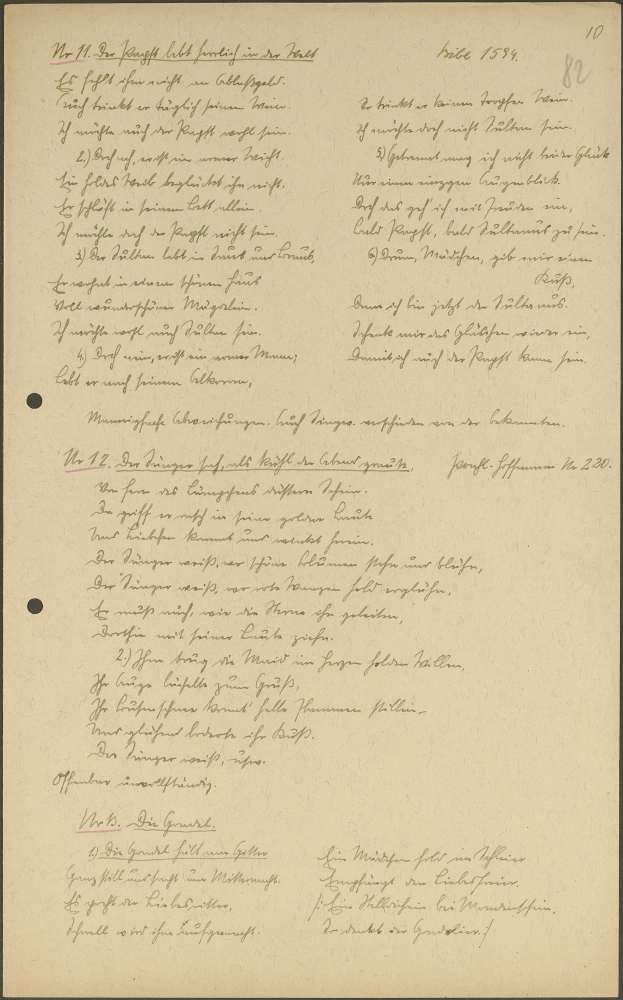 10
82
Nr 11. Der Papst lebt herrlich in der Welt
Bibl 1594.
Es fehlt ihm nicht an Ablaßgeld.
Auch trinkt er täglich seinen Wein.
Ich möchte auch der Papst wohl sein.
2.) Doch ach, er ist ein armer Wicht.
Ein holdes Weib beglücket ihn nicht.
Er schläft in seinem Bett allein.
Ich möchte doch der Papst nicht sein.
3.) Der Sultan lebt in Saus und Braus,
Er wohnt in einem schönen Haus
Voll wunderschöner Mägdelein.
Ich möchte wohl auch Sultan sein.
4.) Doch nein, er ist ein armer Mann,
Lebt er nach seinem Alkoran,
So trinkt er keinen Tropfen Wein.
Ich möchte doch nicht Sultan sein.
5.) Getrennt mag ich nicht beider Glück
Nur einen einzgen Augenblick.
Doch das geh ich mit Freuden ein,
Bald Papst, bald Sultanus zu sein.
6.) Drum, Mädchen, gib mir einen
Kuß,
Denn ich bin jetzt der Sultanus.
Schenk mir das Gläschen wieder ein,
Damit ich auch der Papst kann sein.
Mannigfache Abweichungen. Auch Singw. verschieden von der bekannten.
Nr 12. Der Sänger sah, als kühl der Abend graute,
Hoffmann Nr 220.
Von fern des Lämpchens düstern Schein.
Da griff er rasch in seine goldne Laute
Und Liebchen kommt und winkt herein.
Der Sänger weiß, wo schöne Blumen stehn und blühn,
Der Sänger weiß, wo rote Wangen hold erglühn.
Er muß auch, wie die Sterne ihn geleiten,
Dorthin mit seiner Laute ziehn.
2.) Ihm trug die Maid im Herzen holden Willen,
Ihr Auge lächelte zum Gruß,
Ihr Busenschnee konnt' helle Flammen stillen
Und glühend loderte ihr Kuß.
Der Sänger weiß, usw.
Offenbar unvollständig.
Nr 13. Die Gondel.
1.) Die Gondel hält am Gitter
Ganz still und sacht um Mitternacht.
Es geht der Liebesritter,
Schnell wird ihm aufgemacht.
Ein Mädchen hold im Schleier
Empfängt den Liebesfreier.
/: Ein Stelldichein bei Mondenschein,
So denkt der Gondolier. :/